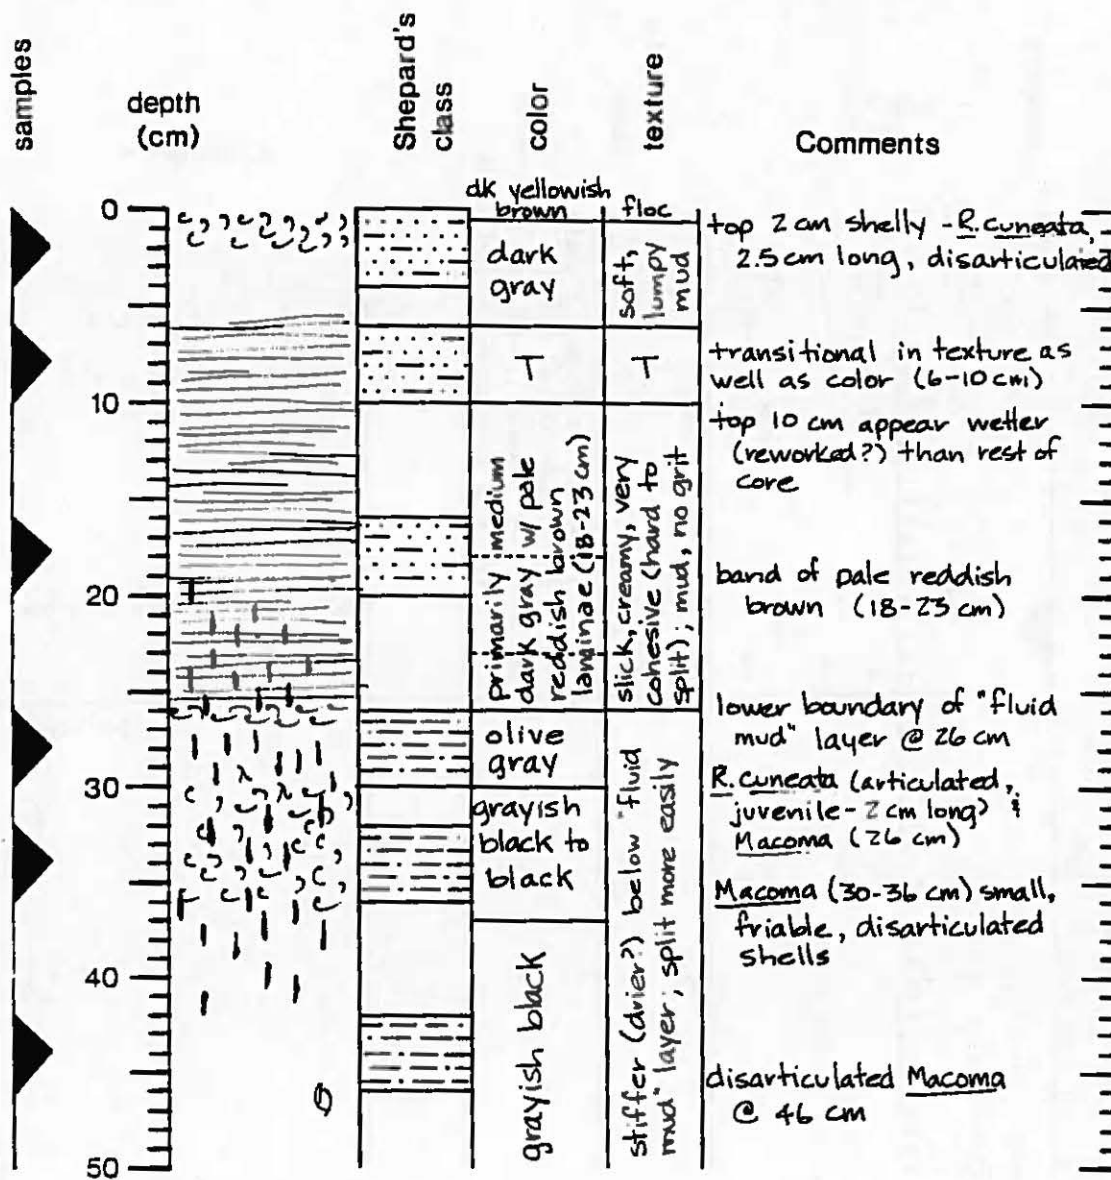 samples
depth
(cm)
Shepard's
class
color
texture
Comments
0
10
20
30
40
50
dk yellowish
brown
dark
gray
T
primarily medium
dark gray w/ pale
reddish brown
laminae (18-23 cm)
olive
gray
grayish
black to
black
grayish black
floc
soft,
lumpy
mud
T
slick, creamy, very
cohesive (hard to
split); mud, no grit
stiffer (drier?) below "fluid
mud" layer; split more easily
top 2 cm shelly - R. cuneata,
2.5 cm long, disarticulated
transitional in texture as
well as color (6-10 cm)
top 10 cm appear wetter
(reworked?) than rest of
core
band of pale reddish
brown (18-23 cm)
lower boundary of "fluid
mud" layer @ 26 cm
R. cuneata (articulated,
juvenile - 2 cm long) &
Macoma (26 cm)
Macoma (30-36 cm) small,
friable, disarticulated
shells
disarticulated Macoma
@ 46 cm